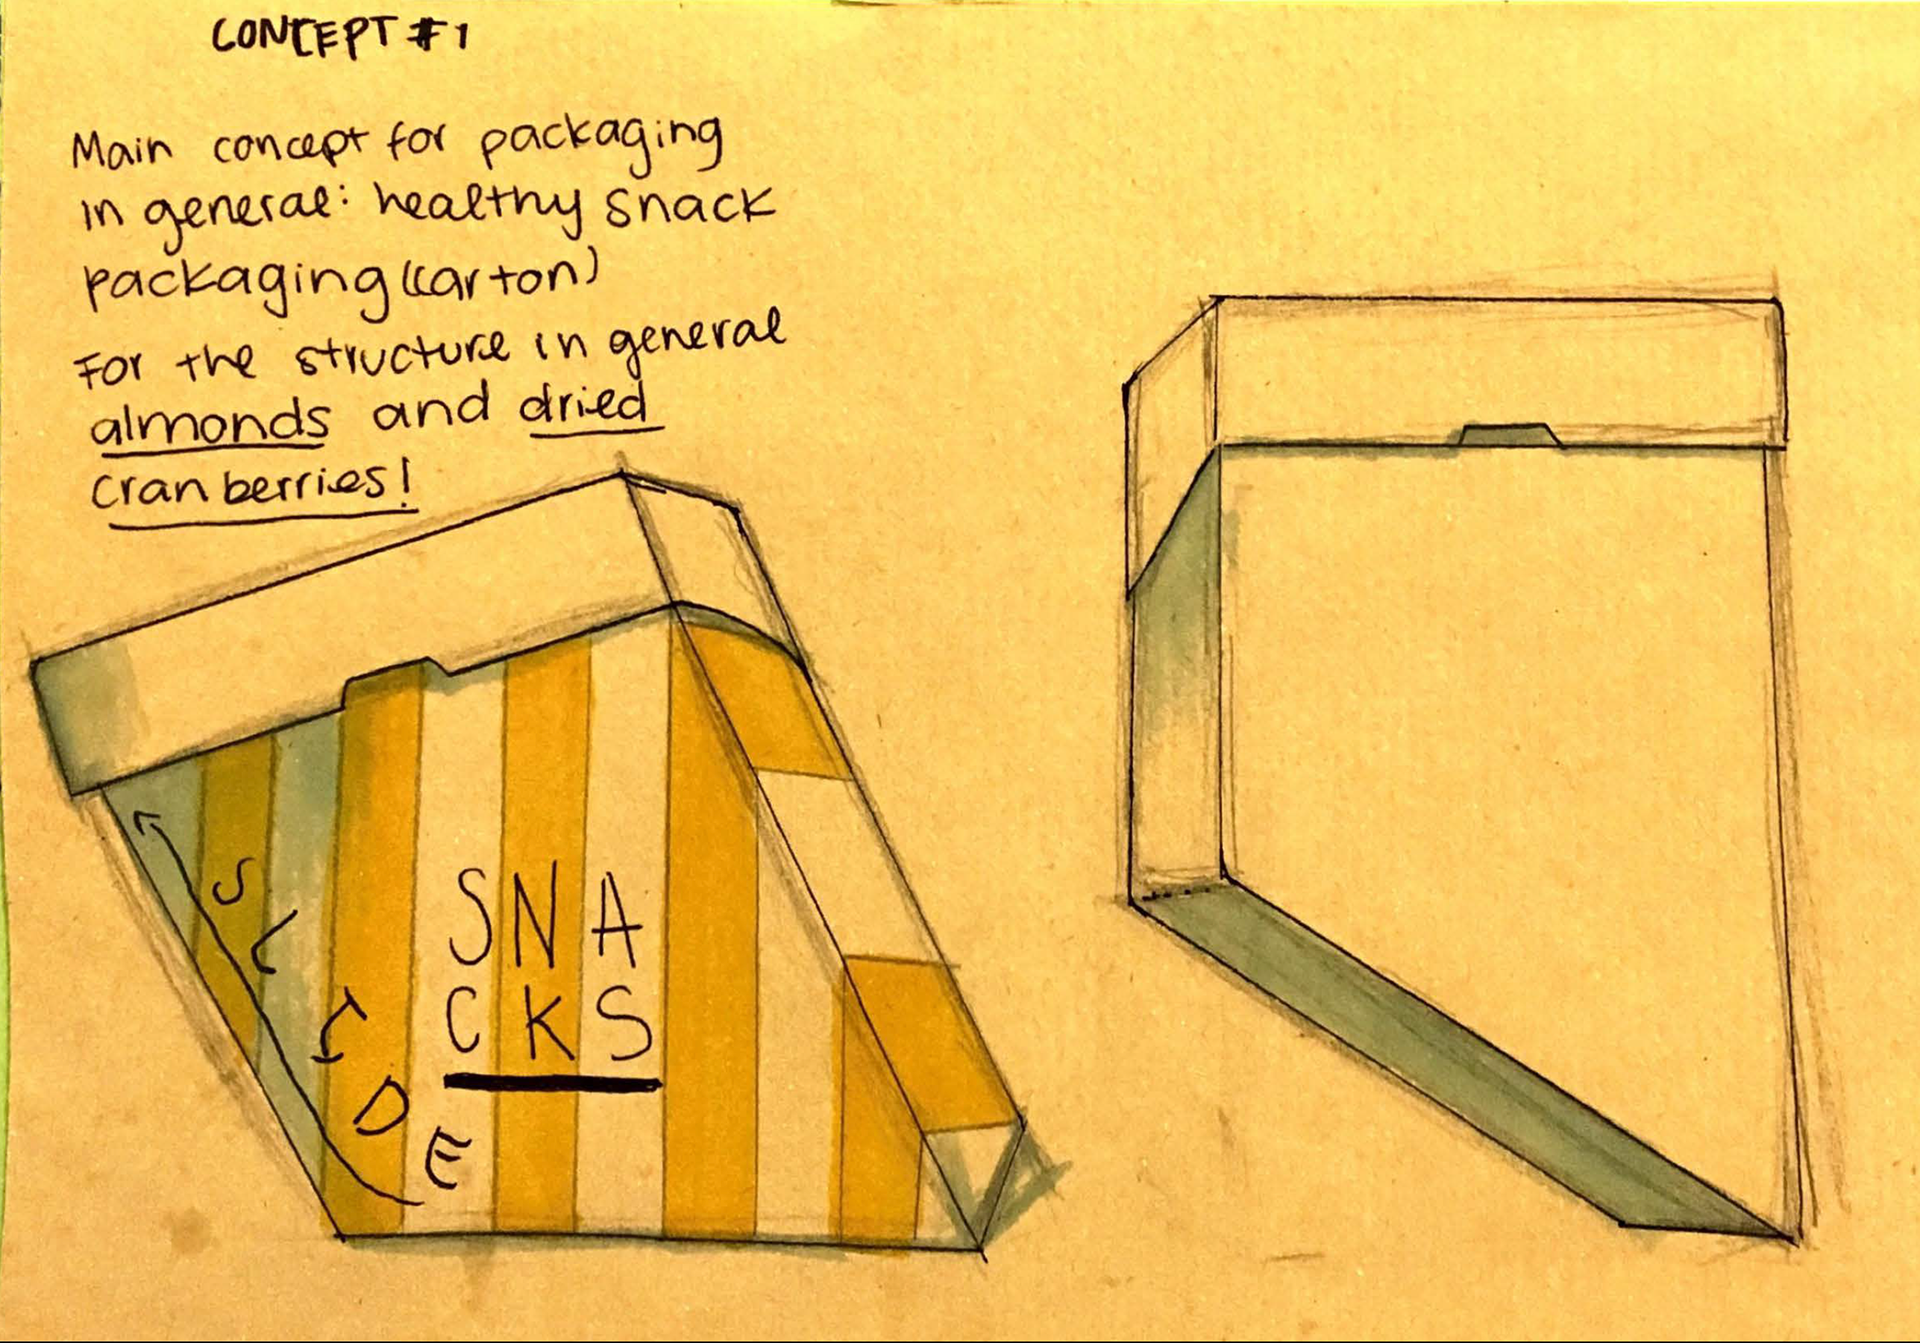 CONCEPT #1
Main concept for packaging
in general: healthy snack
packaging (carton)
For the structure in general
almonds and dried
cranberries!
SNA
CKS
SLIDE